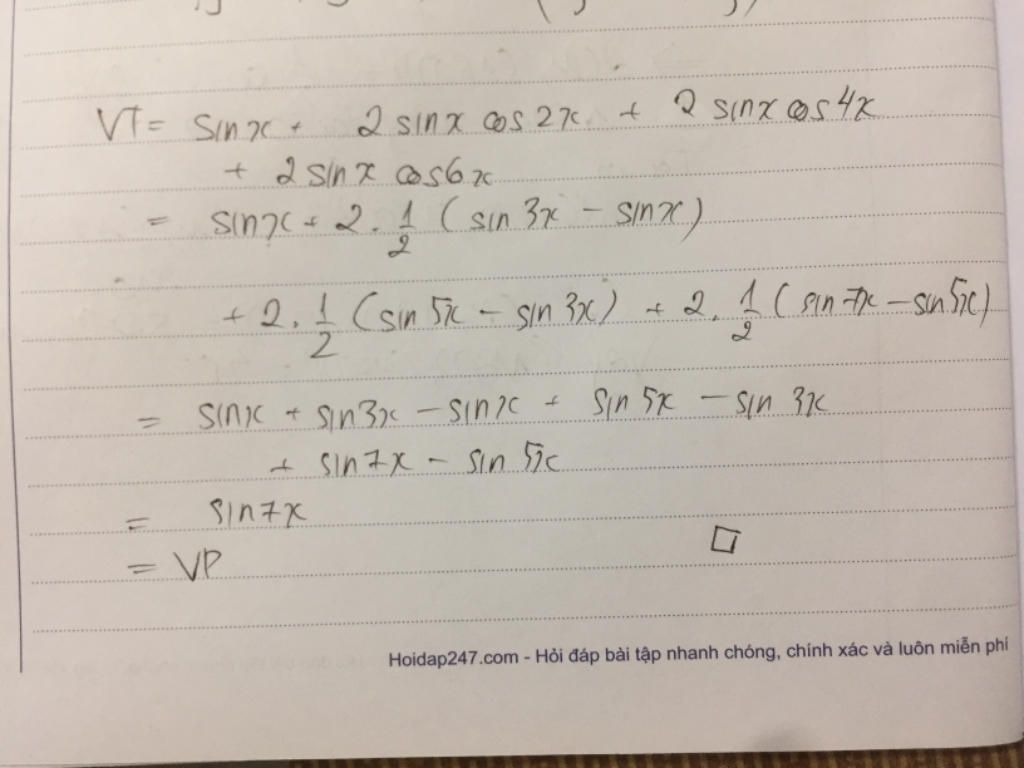 VT = sin x + 2 sin x cos 2x + 2 sin x cos 4x
+ 2 sin x cos 6x
= sin x + 2 . 1/2 ( sin 3x - sin x )
+ 2 . 1/2 ( sin 5x - sin 3x ) + 2 . 1/2 ( sin 7x - sin 5x )
= sin x + sin 3x - sin x + sin 5x - sin 3x
+ sin 7x - sin 5x
= sin 7x
= VP □
Hoidap247.com - Hỏi đáp bài tập nhanh chóng, chính xác và luôn miễn phí